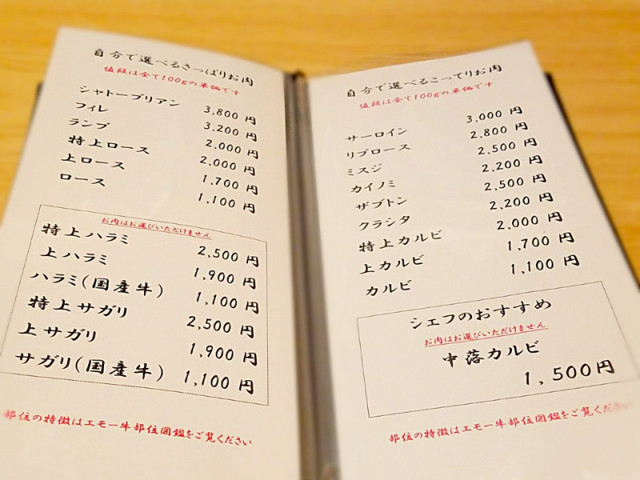 自分で選べるさっぱりお肉
値段は全て100gの単価です
シャトーブリアン 3,800 円
フィレ 3,200 円
ランプ 2,000 円
特上ロース 2,000 円
上ロース 1,700 円
ロース 1,100 円
お肉はお選びいただけません
特上ハラミ 2,500 円
上ハラミ 1,900 円
ハラミ(国産牛) 1,100 円
特上サガリ 2,500 円
上サガリ 1,900 円
サガリ(国産牛) 1,100 円
部位の特徴はエモー牛部位図鑑をご覧ください
自分で選べるこってりお肉
値段は全て100gの単価です
サーロイン 3,000 円
リブロース 2,800 円
ミスジ 2,500 円
カイノミ 2,200 円
ザブトン 2,500 円
クラシタ 2,200 円
特上カルビ 2,000 円
上カルビ 1,700 円
カルビ 1,100 円
シェフのおすすめ
お肉はお選びいただけません
中落カルビ
1,500円
部位の特徴はエモー牛部位図鑑をご覧ください